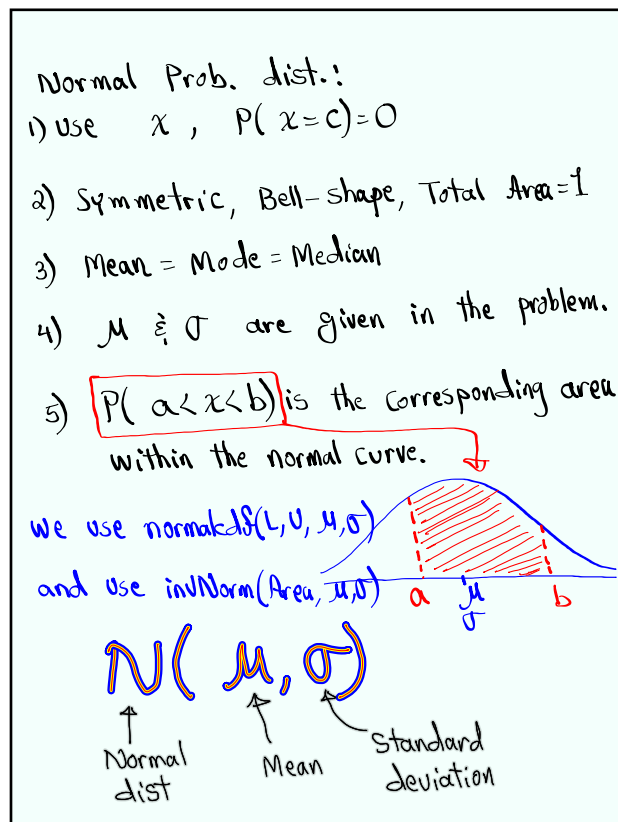 Normal Prob. dist.:
1) Use x, P(x=c)=0
2) Symmetric, Bell-shape, Total Area=1
3) Mean = Mode = Median
4) μ & σ are given in the problem.
5) P(a<x<b) is the corresponding area
within the normal curve.
We use normalcdf(L, U, μ, σ)
and use invNorm(Area, μ, σ)
a μ b
σ
N(μ, σ)
Normal dist
Mean
Standard deviation